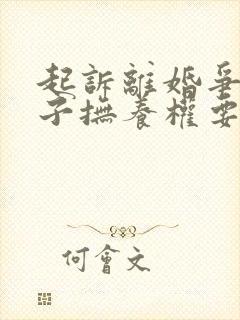 起訴離婚爭
子撫養權要
何會文